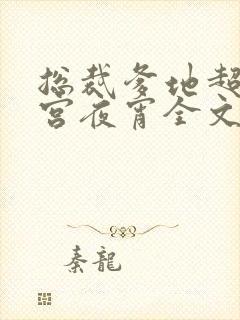 总裁爹地超
宫夜宵全文
秦龍